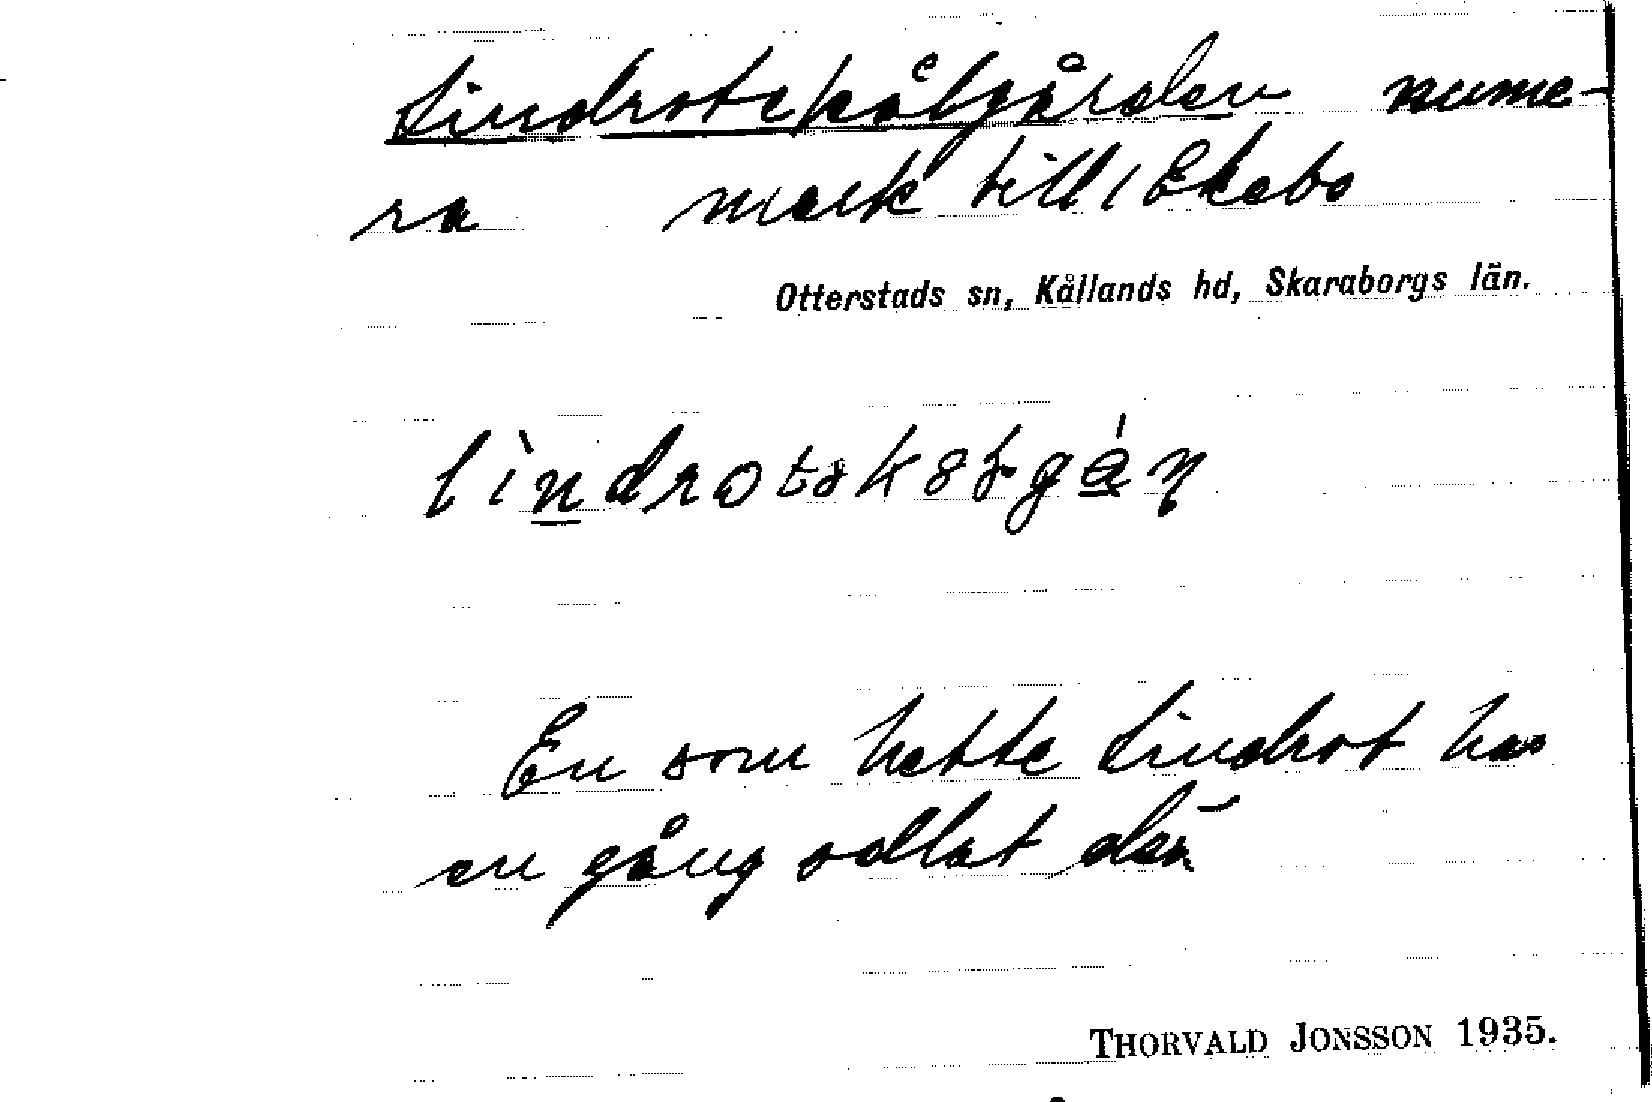 Lindrotskålgården nume-
ra mark till Ekebo
Otterstads sn, Kållands hd, Skaraborgs län.
En som hette Lindrot har
en gång odlat den
THORVALD JONSSON 1935.